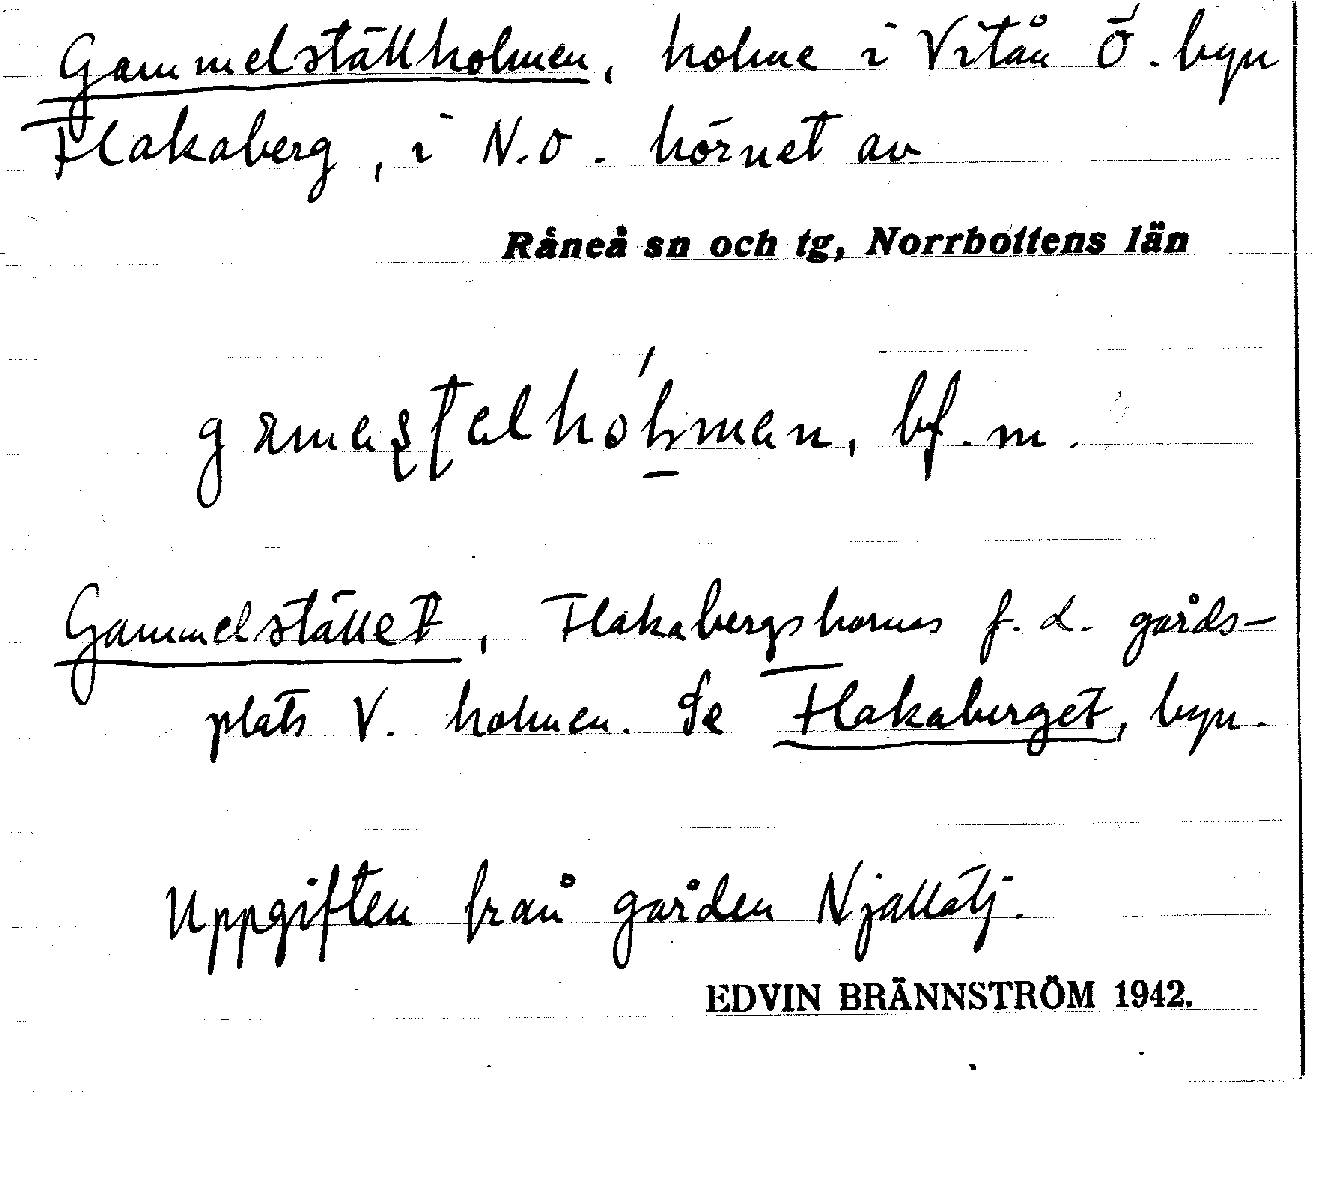 Gammelställholmen, holme i Vitån Ö. byn
Flakaberg, i N.O. hörnet av
Råneå sn och tg, Norrbottens län
bf. m.
Gammelstället, Flakabergsbornas f.d. gårds-
plats V. holmen. Se Flakaberget, byn.
Uppgiften från gården Njallatj.
EDVIN BRÄNNSTRÖM 1942.